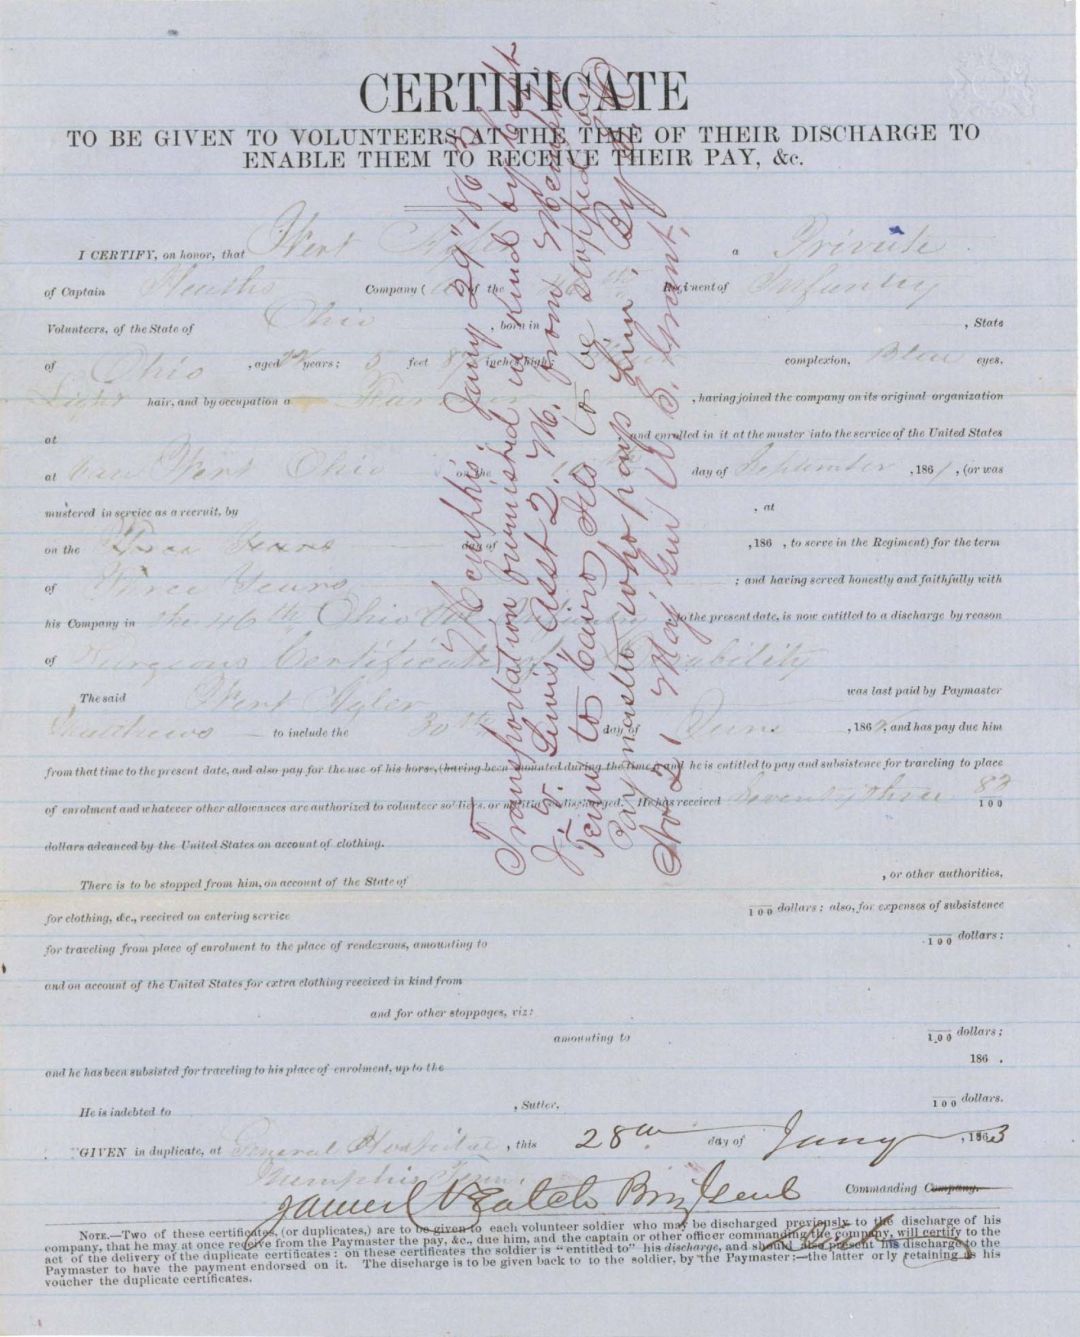 CERTIFICATE
TO BE GIVEN TO VOLUNTEERS AT THE TIME OF THEIR DISCHARGE TO
ENABLE THEM TO RECEIVE THEIR PAY, &c.
I CERTIFY, on honor, that Wert a Private
of Captain Heaths Company ( ) of the 46th Regiment of Infantry
Volunteers, of the State of Ohio , born in , State
of Ohio , aged years; 5 feet 8 inches high; complexion, Blue eyes.
Light hair, and by occupation a Farmer , having joined the company on its original organization
at and enrolled in it at the muster into the service of the United States
at Van Wert Ohio on the day of September , 1861 , (or was
mustered in service as a recruit, by , at
on the day of , 186 , to serve in the Regiment) for the term
of Three Years ; and having served honestly and faithfully with
his Company in the 46th Ohio Vol Infantry to the present date, is now entitled to a discharge by reason
of Surgeons Certificate of Disability
The said Wert was last paid by Paymaster
Matthews to include the 30th day of June , 1862, and has pay due him
from that time to the present date, and also pay for the use of his horse, (having been mounted during the time;) and he is entitled to pay and subsistence for traveling to place
of enrolment and whatever other allowances are authorized to volunteer soldiers, or militia so discharged. He has received Seventy three 83/100
dollars advanced by the United States on account of clothing.
There is to be stopped from him, on account of the State of , or other authorities,
for clothing, &c., received on entering service /100 dollars; also, for expenses of subsistence
for traveling from place of enrolment to the place of rendezvous, amounting to /100 dollars;
and on account of the United States for extra clothing received in kind from
and for other stoppages, viz:
amounting to /100 dollars;
and he has been subsisted for traveling to his place of enrolment, up to the 186 .
He is indebted to , Sutler, /100 dollars.
GIVEN in duplicate, at General Hospital , this 28th day of Jany , 1863
Memphis Tenn.
James C Veatch Brig Genl Commanding Company.
NOTE.—Two of these certificates, (or duplicates,) are to be given to each volunteer soldier who may be discharged previously to the discharge of his
company, that he may at once receive from the Paymaster the pay, &c., due him, and the captain or other officer commanding the company, will certify to the
act of the delivery of the duplicate certificates: on these certificates the soldier is "entitled to" his discharge, and should also present his discharge to the
Paymaster to have the payment endorsed on it. The discharge is to be given back to to the soldier, by the Paymaster:—the latter only retaining as his
voucher the duplicate certificates.
Memphis, Jany 29" 1863
Transportation furnished in kind by Capt
J. V. Lewis' Asst 2. M. from Memphis
Tenn to Cairo Ills to be stopped by
Paymaster who pays him. By
No 2, Maj Gen U. S. Grant.